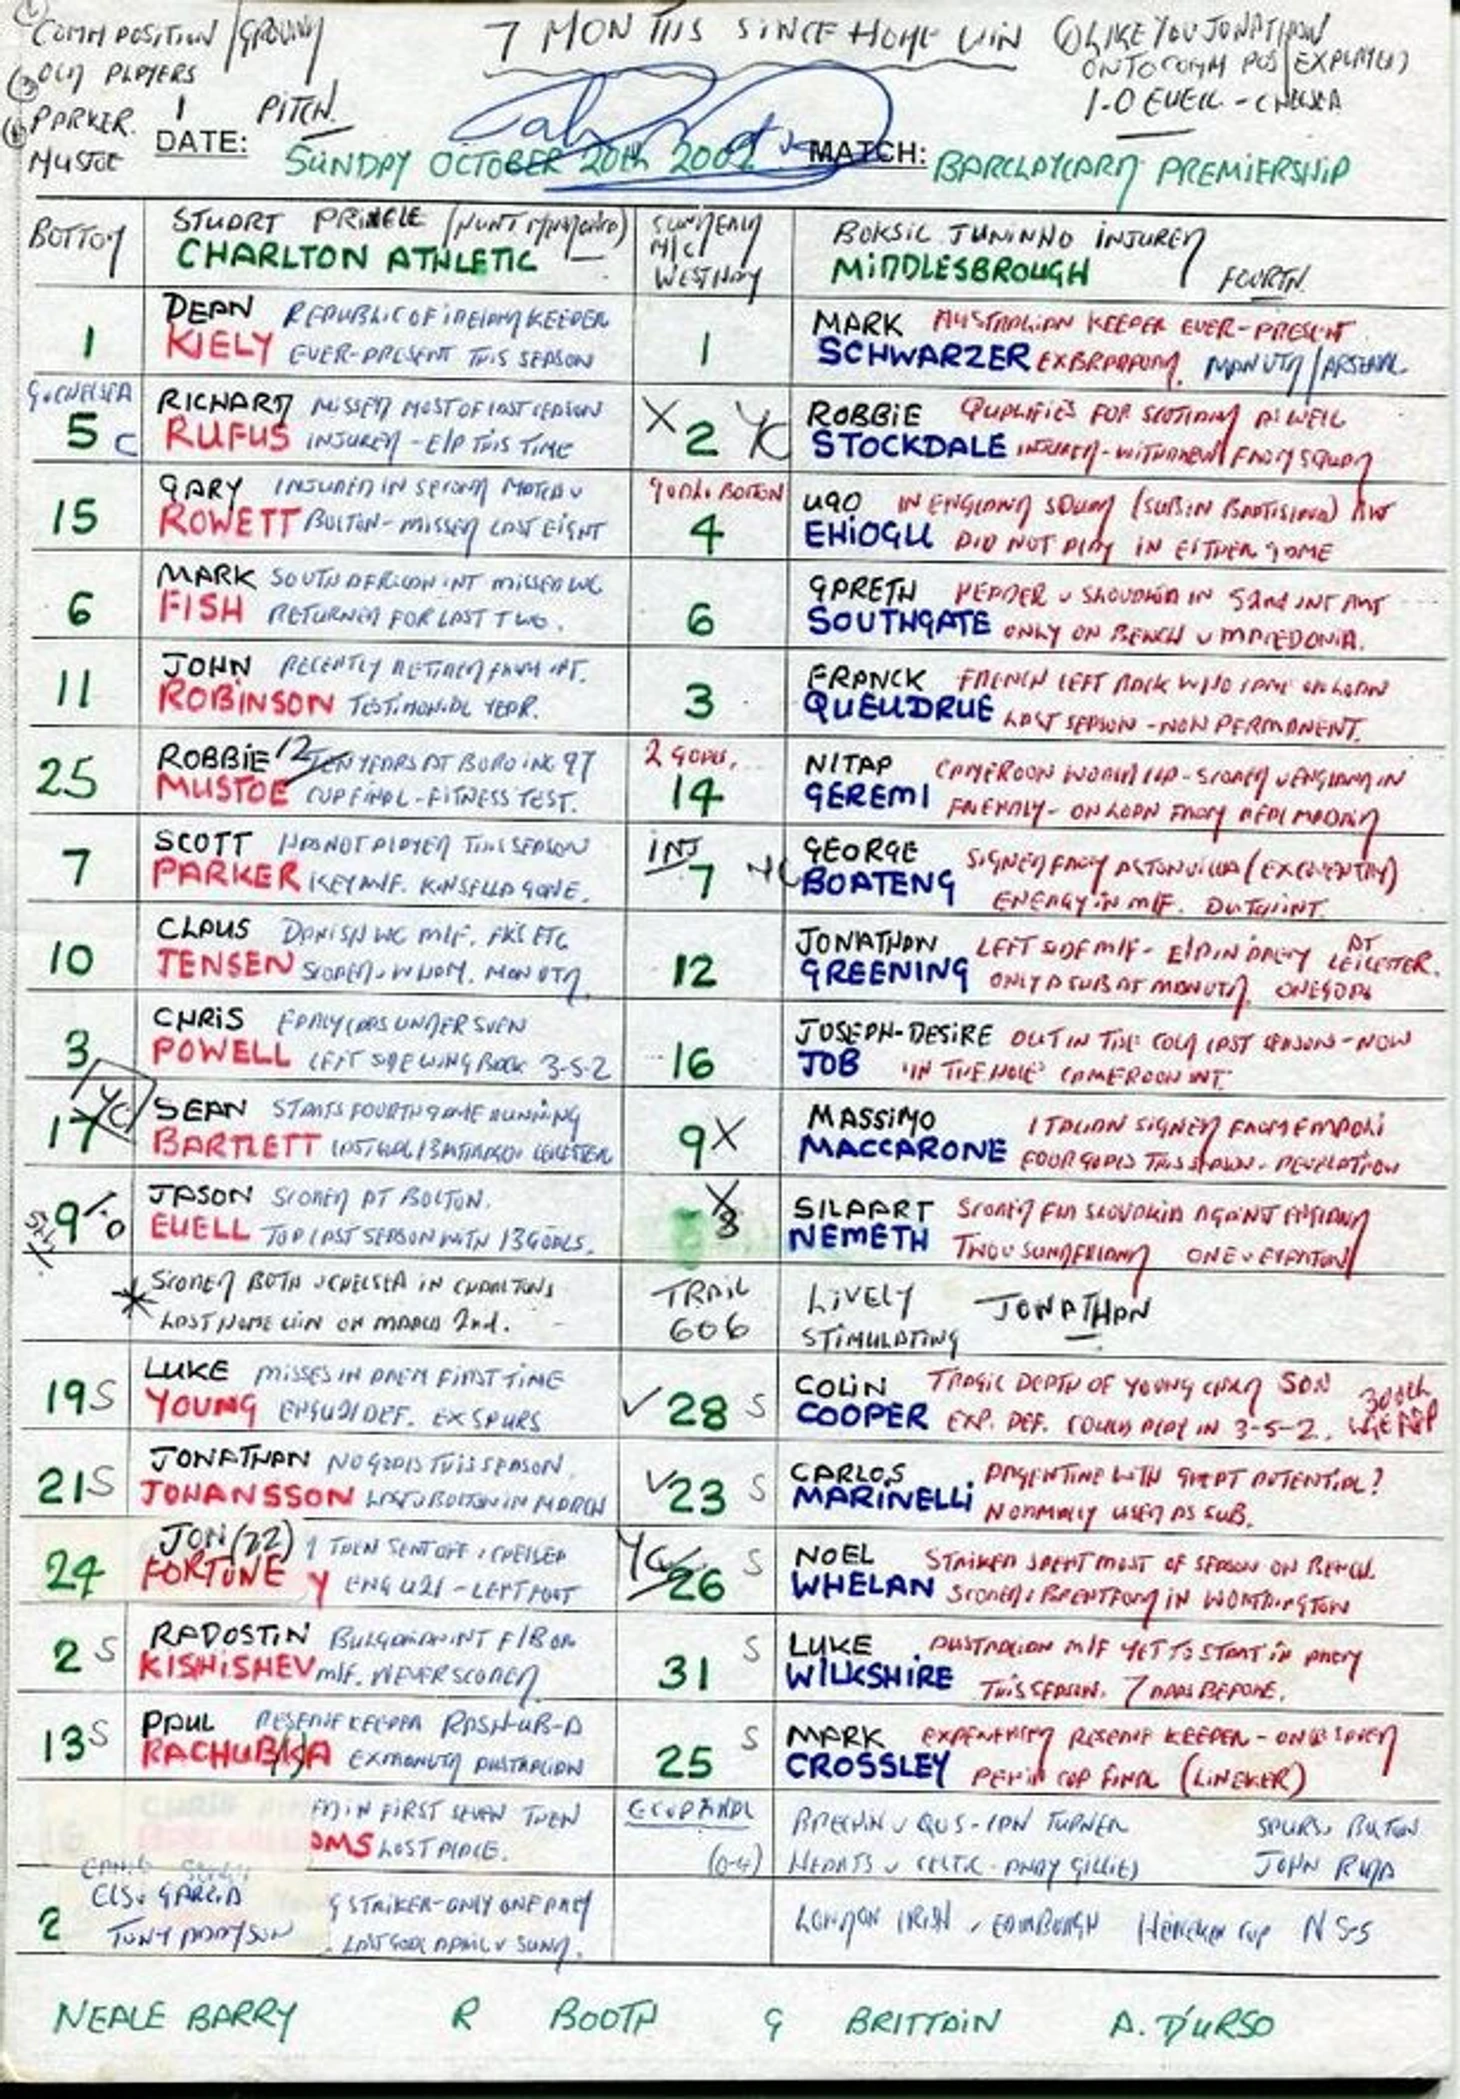 COMM POSITION / GROUND
OLD PLAYERS
PARKER 1 PITCH
MUSTOE
7 MONTHS SINCE HOME WIN
LIKE YOU JONATHAN
ONTO COMM POS EXPLAINED
1-0 EUELL - CHELSEA
DATE: SUNDAY OCTOBER 20th 2002 MATCH: BARCLAYCARD PREMIERSHIP
BOTTOM
STUART PRINGLE
CHARLTON ATHLETIC
SUNDERLAND
M/C
WEST HAM
BOKSIC JUNINHO INJURED
MIDDLESBROUGH FOURTH
1 DEAN REPUBLIC OF IRELAND KEEPER
KIELY EVER-PRESENT THIS SEASON
1 MARK AUSTRALIAN KEEPER EVER-PRESENT
SCHWARZER EX BRADFORD. MAN UTD / ARSENAL
G.v CHELSEA
5 C RICHARD MISSED MOST OF LAST SEASON
RUFUS INJURED - E/P THIS TIME
X 2 YC ROBBIE QUALIFIES FOR SCOTLAND AS WELL
STOCKDALE INJURED - WITHDREW FROM SQUAD
15 GARY INJURED IN SECOND MATCH v
ROWETT BOLTON - MISSED LAST EIGHT
GOAL v BOLTON
4 UGO IN ENGLAND SQUAD (SUB IN BRATISLAVA) BUT
EHIOGU DID NOT PLAY IN EITHER GAME
6 MARK SOUTH AFRICAN INT MISSED WC
FISH RETURNED FOR LAST TWO.
6 GARETH HEADER v SLOVAKIA IN 52nd INT BUT
SOUTHGATE ONLY ON BENCH v MACEDONIA.
11 JOHN RECENTLY RETIRED FROM INT.
ROBINSON TESTIMONIAL YEAR.
3 FRANCK FRENCH LEFT BACK WHO CAME ON LOAN
QUEUDRUE LAST SEASON - NOW PERMANENT.
25 ROBBIE 12 TEN YEARS AT BORO INC 97
MUSTOE CUP FINAL - FITNESS TEST.
2 GOALS.
14 NITAP CAMEROON WORLD CUP - SCORED v ENGLAND IN
GEREMI FRIENDLY - ON LOAN FROM REAL MADRID
7 SCOTT HAS NOT PLAYED THIS SEASON
PARKER KEY M/F. KINSELLA GONE.
INJ
7 YC GEORGE SIGNED FROM ASTON VILLA (EX COVENTRY)
BOATENG ENERGY IN M/F. DUTCH INT.
10 CLAUS DANISH WC M/F. FKS ETC
JENSEN SCORED v W HAM. MAN UTD.
12 JONATHAN LEFT SIDE M/F - E/P IN PREM AT LEICESTER.
GREENING ONLY A SUB AT MAN UTD. ONE GOAL
3 CHRIS EARLY CAPS UNDER SVEN
POWELL LEFT SIDE WING BACK 3-5-2
16 JOSEPH-DESIRE OUT IN THE COLD LAST SEASON - NOW
JOB 'IN THE HOLE' CAMEROON INT.
YC
17 SEAN STARTS FOURTH GAME RUNNING
BARTLETT LAST GOAL 13 MTHS AGO v LEICESTER
9 X MASSIMO ITALIAN SIGNED FROM EMPOLI
MACCARONE FOUR GOALS THIS SEASON - REVELATION
9 1-0 JASON SCORED AT BOLTON.
EUELL TOP LAST SEASON WITH 13 GOALS.
X 8 SILAART SCORED FOR SLOVAKIA AGAINST ENGLAND
NEMETH TWO v SUNDERLAND ONE v EVERTON
* SCORED BOTH v CHELSEA IN CHARLTON'S
LAST HOME WIN ON MARCH 2nd.
TRAIL
606
LIVELY JONATHAN
STIMULATING
19 S LUKE MISSES IN PREM FIRST TIME
YOUNG ENG U21 DEF. EX SPURS
✓ 28 S COLIN TRAGIC DEATH OF YOUNG SON 300th LGE APP
COOPER EXP. DEF. COULD PLAY IN 3-5-2.
21 S JONATHAN NO GOALS THIS SEASON.
JOHANSSON LAST v BOLTON IN MARCH
✓ 23 S CARLOS ARGENTINE WITH GREAT POTENTIAL?
MARINELLI NORMALLY USED AS SUB.
24 JON (22) 1 THEN SENT OFF v CHELSEA
FORTUNE Y ENG U21 - LEFT FOOT
YC 26 S NOEL STRIKER SPENT MOST OF SEASON ON BENCH.
WHELAN SCORED v BRENTFORD IN WORTHINGTON
2 S RADOSTIN BULGARIAN INT F/B OR
KISHISHEV M/F. NEVER SCORED
31 S LUKE AUSTRALIAN M/F YET TO START IN PREM
WILKSHIRE THIS SEASON. 7 APPS BEFORE.
13 S PAUL RESERVE KEEPER RASH-UB-A
RACHUBKA EX MAN UTD AUSTRALIAN
25 S MARK EXPERIENCED RESERVE KEEPER - ONCE SAVED
CROSSLEY PEN IN CUP FINAL (LINEKER)
IN FIRST SEVEN THEN
OMS LOST PLACE.
(0-4)
BRECHIN v QOS - IAN TURNER SPURS v BOLTON
HEARTS v CELTIC - ANDY GILLIES JOHN
2 CLSV GARCIA
TONY ADDYSON
G STRIKER - ONLY ONE PREM
LAST GOAL APRIL v SUND.
LONDON IRISH v EDINBURGH HEINEKEN CUP N S-S
NEALE BARRY R BOOTH G BRITTAIN A. D'URSO